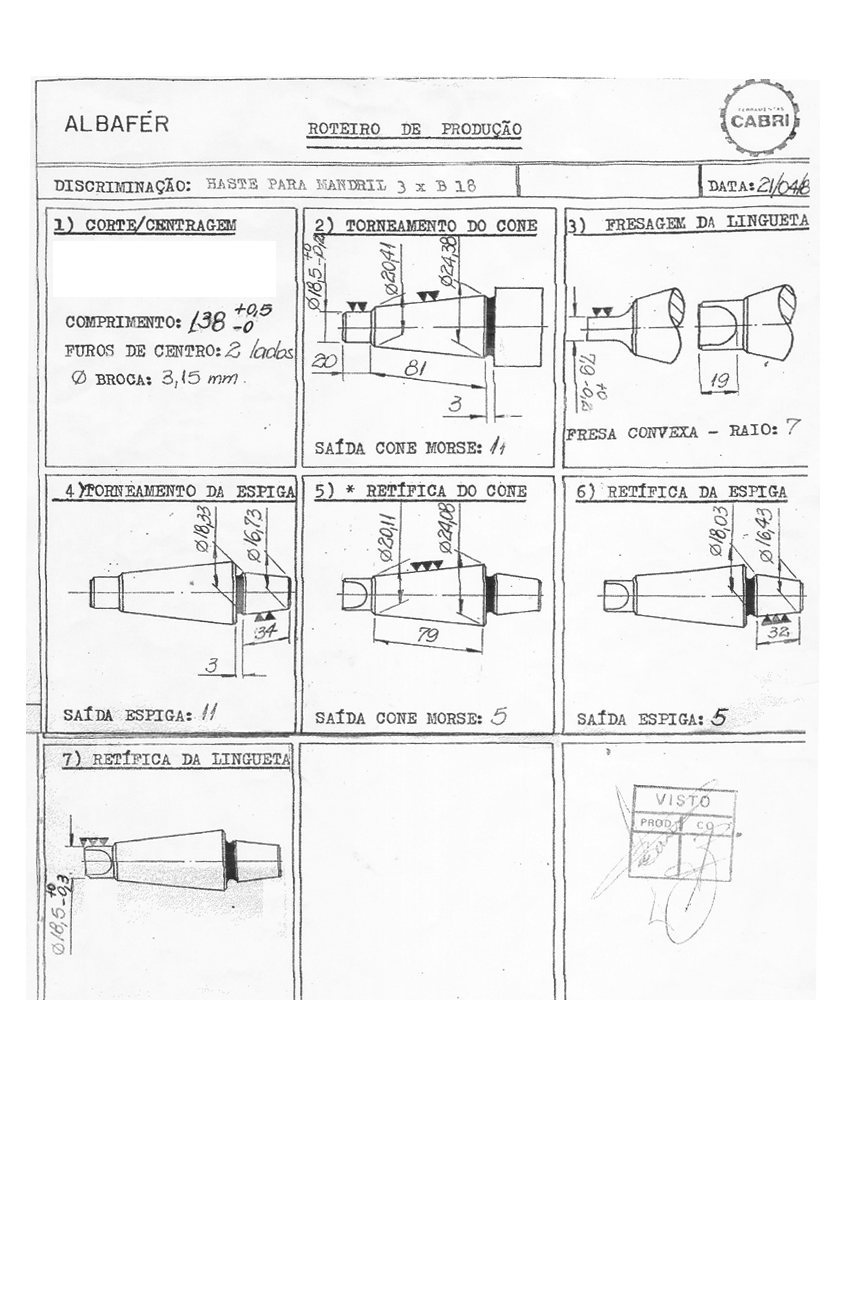 ALBAFÉR
ROTEIRO DE PRODUÇÃO
FERRAMENTAS
CABRI
DISCRIMINAÇÃO: HASTE PARA MANDRIL 3 x B 18
DATA: 21/04/8
1) CORTE/CENTRAGEM
COMPRIMENTO: 138 +0,5 -0
FUROS DE CENTRO: 2 lados
Ø BROCA: 3,15 mm.
2) TORNEAMENTO DO CONE
Ø18,5 +0
Ø20,41
Ø24,38
20
81
3
SAÍDA CONE MORSE: 11
3) FRESAGEM DA LINGUETA
7,9 +0
19
FRESA CONVEXA - RAIO: 7
4) TORNEAMENTO DA ESPIGA
Ø18,33
Ø16,73
34
3
SAÍDA ESPIGA: 11
5) * RETÍFICA DO CONE
Ø20,11
Ø24,08
79
SAÍDA CONE MORSE: 5
6) RETÍFICA DA ESPIGA
Ø18,03
Ø16,43
32
SAÍDA ESPIGA: 5
7) RETÍFICA DA LINGUETA
Ø18,5 +0 -0,3
VISTO
PROD.